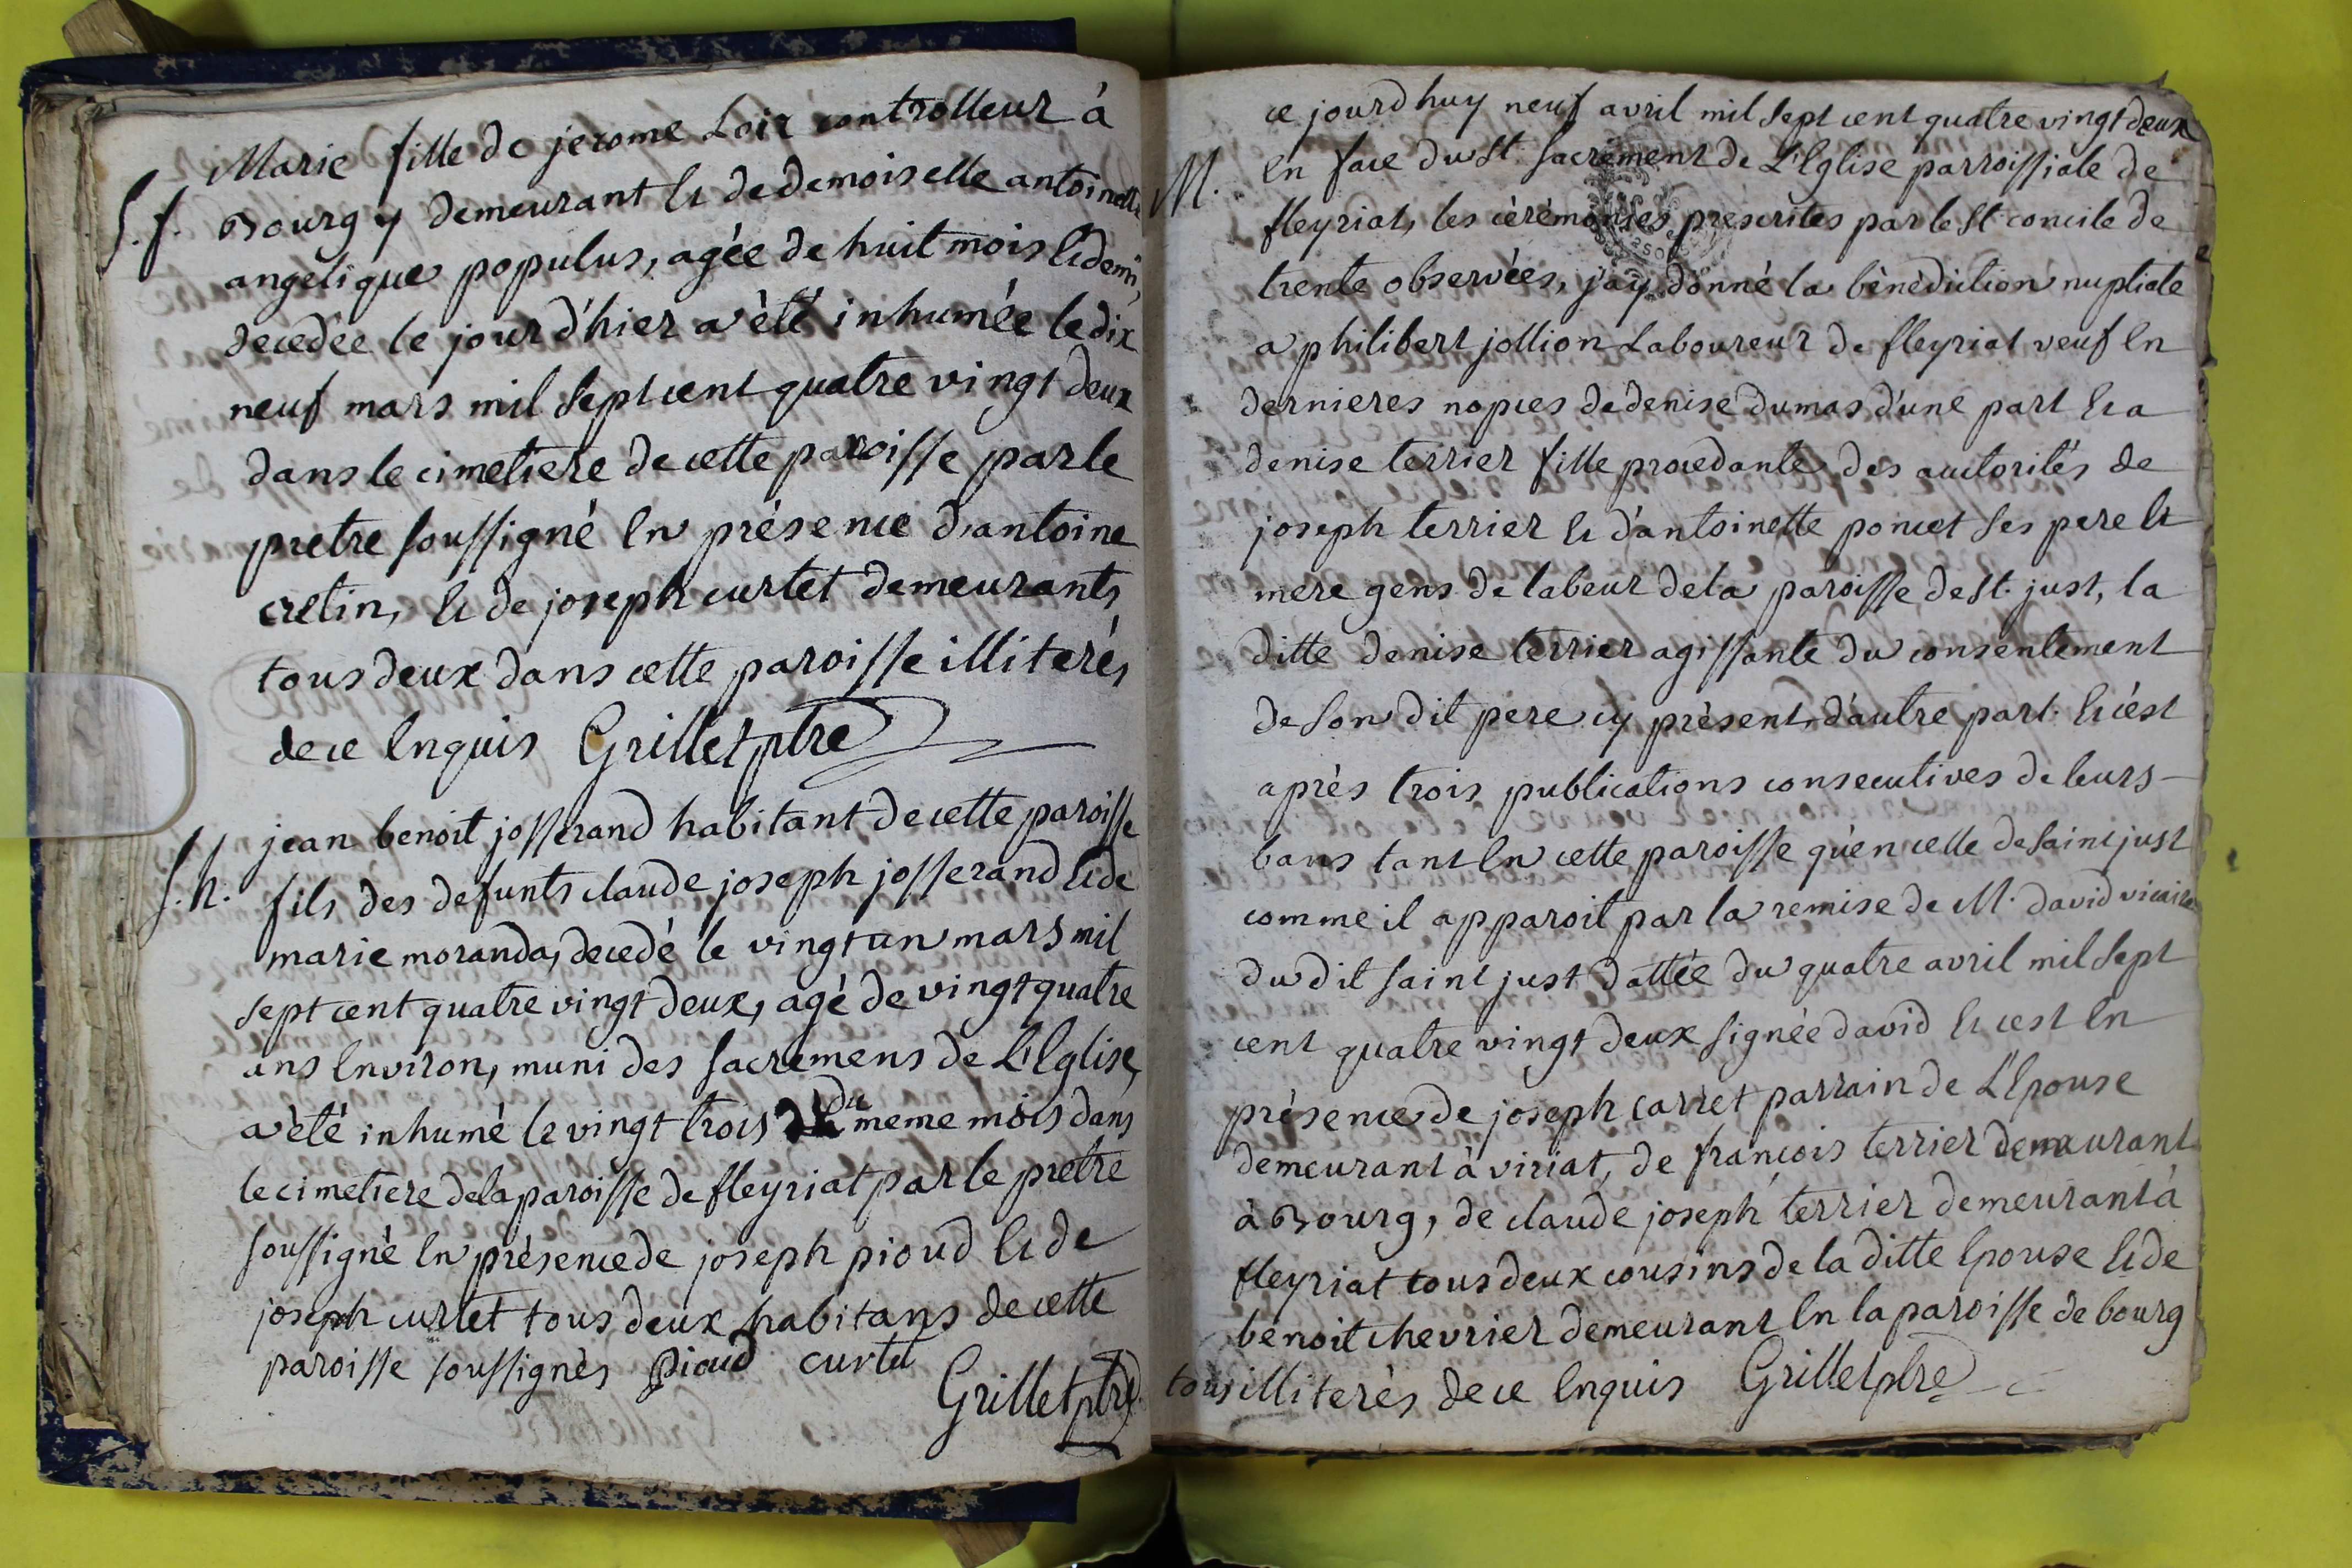 Marie fille de jerome Loir controlleur à
S. f. Bourg y demeurant et de demoiselle antoinette
angelique populus, agée de huit mois et demi,
decedée le jour d'hier a été inhumée le dix
neuf mars mil sept cent quatre vingt deux
dans le cimetiere de cette paroisse par le
pretre soussigné en présence d'antoine
cretin, et de joseph curtet demeurants
tous deux dans cette paroisse illiterés
de ce enquis Grillet ptre
jean benoit josserand habitant de cette paroisse
S. h. fils des defunts claude joseph josserand et de
marie moranda, decedé le vingt un mars mil
sept cent quatre vingt deux, agé de vingt quatre
ans environ, muni des sacremens de L'Eglise,
a été inhumé le vingt trois du meme mois dans
le cimetiere de la paroisse de fleyriat par le pretre
soussigné en présence de joseph pioud et de
joseph curtet tous deux habitans de cette
paroisse soussignés pioud curtet
Grillet ptre
ce jourd huy neuf avril mil sept cent quatre vingt deux
M. en face du St. sacrement de L'Eglise parroissiale de
fleyriat, les cérémonies prescrites par le St concile de
trente observées, j'ay donné la bénédiction nuptiale
a philibert jollion Laboureur de fleyriat veuf en
dernieres nopces de denise dumas d'une part et a
denise terrier fille procedante des auctorités de
joseph terrier et d'antoinette poncet ses pere et
mere gens de labeur de la paroisse de St. just, la
ditte denise terrier agissante du consentement
de son dit pere cy présent, d'autre part. et c'est
après trois publications consecutives de leurs
bans tant en cette paroisse qu'en celle de saint just
comme il apparoit par la remise de M. david vicaire
du dit saint just dattée du quatre avril mil sept
cent quatre vingt deux signée david et c'est en
présence de joseph carret parrain de L'Epouse
demeurant à viriat, de françois terrier demeurant
à Bourg, de claude joseph terrier demeurant à
fleyriat tous deux cousins de la ditte epouse et de
benoit chevrier demeurant en la paroisse de bourg
tous illiterés de ce enquis Grillet ptre